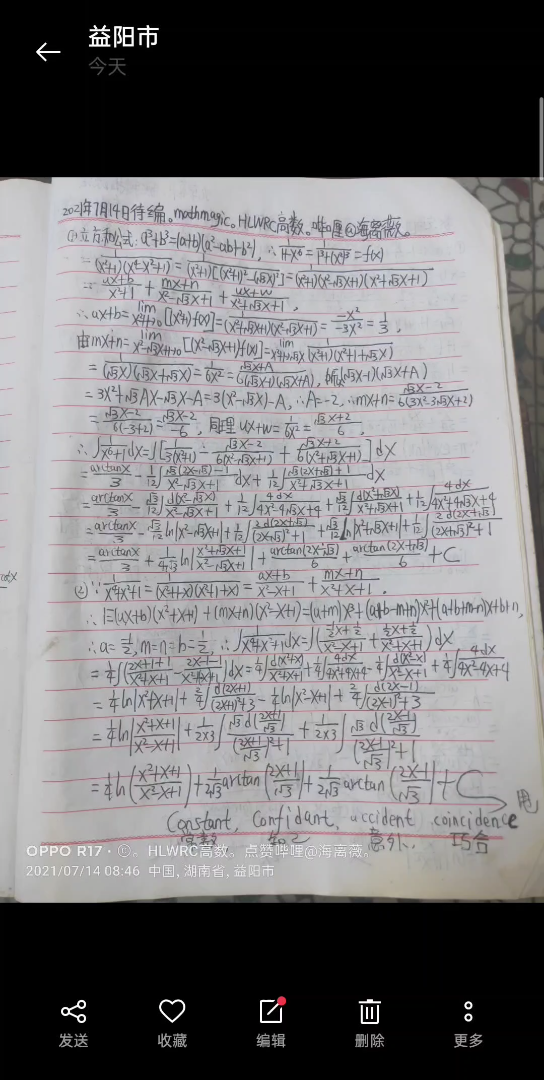 益阳市
今天
2021年7月14日待编。mathmagic。HLWRC高数。哔哩@海离薇。
(1)立方和公式:a³+b³=(a+b)(a²-ab+b²),∴1/(1+x⁶)=1/(1³+(x²)³)=f(x)
=1/((x²+1)(x⁴-x²+1))=1/((x²+1)[(x²+1)²-(√3x)²])=1/((x²+1)(x²-√3x+1)(x²+√3x+1))
=(ax+b)/(x²+1)+(mx+n)/(x²-√3x+1)+(ux+w)/(x²+√3x+1),
∴ax+b=lim[(x²+1)f(x)]=1/((x²+√3x+1)(x²-√3x+1))=-x²/(-3x²)=1/3,
由mx+n=lim[(x²-√3x+1)f(x)]=lim 1/((x²+1)(x²+1+√3x))
=1/((√3x)(√3x+√3x))=1/(6x²)=(√3x+A)/(6(√3x-1)(√3x+A)),
=3x²+√3Ax-√3x-A=3(x²-√3x)-A,∴A=-2,∴mx+n=(√3x-2)/(6(3x²-3√3x+2))
=(√3x-2)/(6(-3+2))=(√3x-2)/-6,同理ux+w=1/(6x²)=(√3x+2)/6.
∴∫1/(x⁶+1)dx=∫[1/(3(x²+1))-(√3x-2)/(6(x²-√3x+1))+(√3x+2)/(6(x²+√3x+1))]dx
=arctanx/3-1/12∫(√3(2x-√3)-1)/(x²-√3x+1)dx+1/12∫(√3(2x+√3)+1)/(x²+√3x+1)dx
=arctanx/3-√3/12∫d(x²-√3x)/(x²-√3x+1)+1/12∫4dx/(4x²-4√3x+4)+√3/12∫d(x²+√3x)/(x²+√3x+1)+1/12∫4dx/(4x²+4√3x+4)
=arctanx/3-√3/12ln|x²-√3x+1|+1/12∫2d(2x-√3)/((2x-√3)²+1)+√3/12ln|x²+√3x+1|+1/12∫2d(2x+√3)/((2x+√3)²+1)
=arctanx/3+1/(4√3)ln|(x²+√3x+1)/(x²-√3x+1)|+arctan(2x-√3)/6+arctan(2x+√3)/6+C
(2)∵1/(x⁴+x²+1)=1/((x²+1+x)(x²+1-x))=(ax+b)/(x²-x+1)+(mx+n)/(x²+x+1).
∴1=(ax+b)(x²+x+1)+(mx+n)(x²-x+1)=(a+m)x³+(a+b-m+n)x²+(a+b+m-n)x+b+n,
∴a=-1/2,m=n=b=1/2,∴∫1/(x⁴+x²+1)dx=∫((-1/2x+1/2)/(x²-x+1)+(1/2x+1/2)/(x²+x+1))dx
=1/4∫((2x+1+1)/(x²+x+1)-(2x-1-1)/(x²-x+1))dx=1/4∫d(x²+x)/(x²+x+1)+1/4∫4dx/(4x²+4x+4)-1/4∫d(x²-x)/(x²-x+1)+1/4∫4dx/(4x²-4x+4)
=1/4ln|x²+x+1|+2/4∫d(2x+1)/((2x+1)²+3)-1/4ln|x²-x+1|+2/4∫d(2x-1)/((2x-1)²+3)
=1/4ln|(x²+x+1)/(x²-x+1)|+1/(2×3)∫√3d((2x+1)/√3)/(((2x+1)/√3)²+1)+1/(2×3)∫√3d((2x-1)/√3)/(((2x-1)/√3)²+1)
=1/4ln((x²+x+1)/(x²-x+1))+1/(2√3)arctan((2x+1)/√3)+1/(2√3)arctan((2x-1)/√3)+C
甩
Constant, Confidant, accident coincidence
常数 知己 意外、 巧合
OPPO R17·©。HLWRC高数。点赞哔哩@海离薇。
2021/07/14 08:46 中国, 湖南省, 益阳市
发送 收藏 编辑 删除 更多